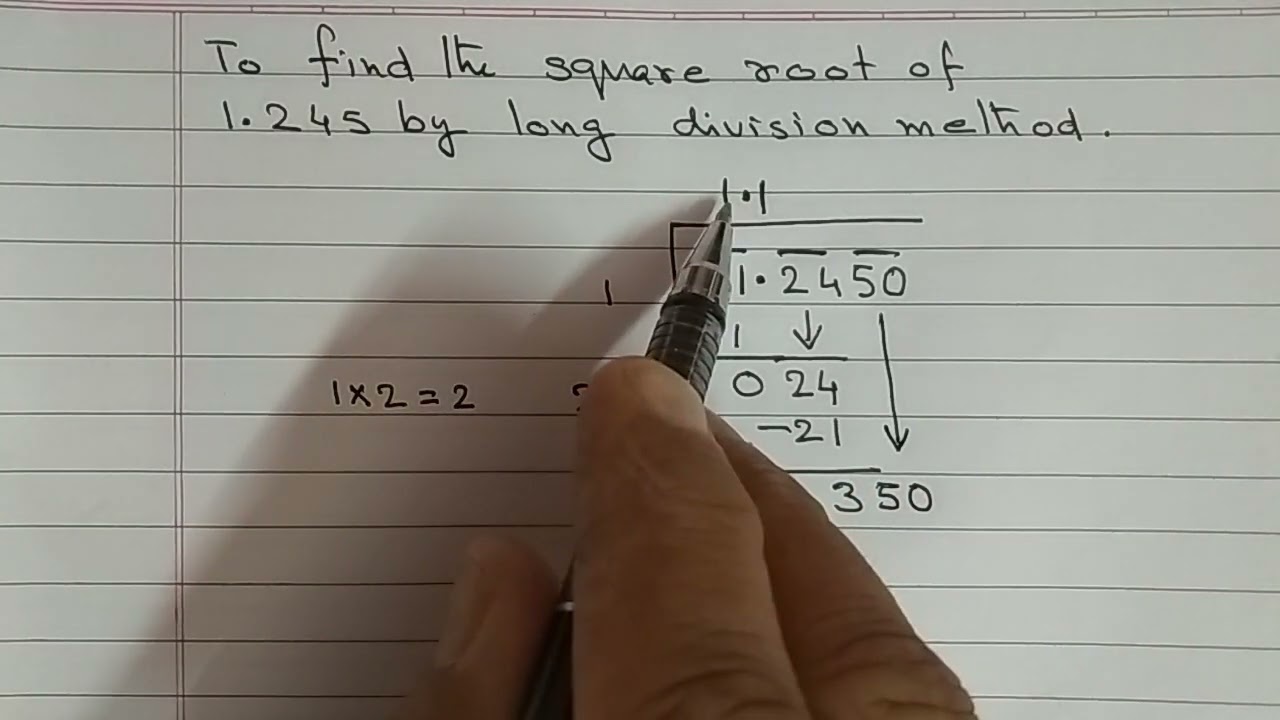 To find the square root of
1.245 by long division method.
1.1
1 1.2450
1 ↓
1×2=2 0 24
-21
350